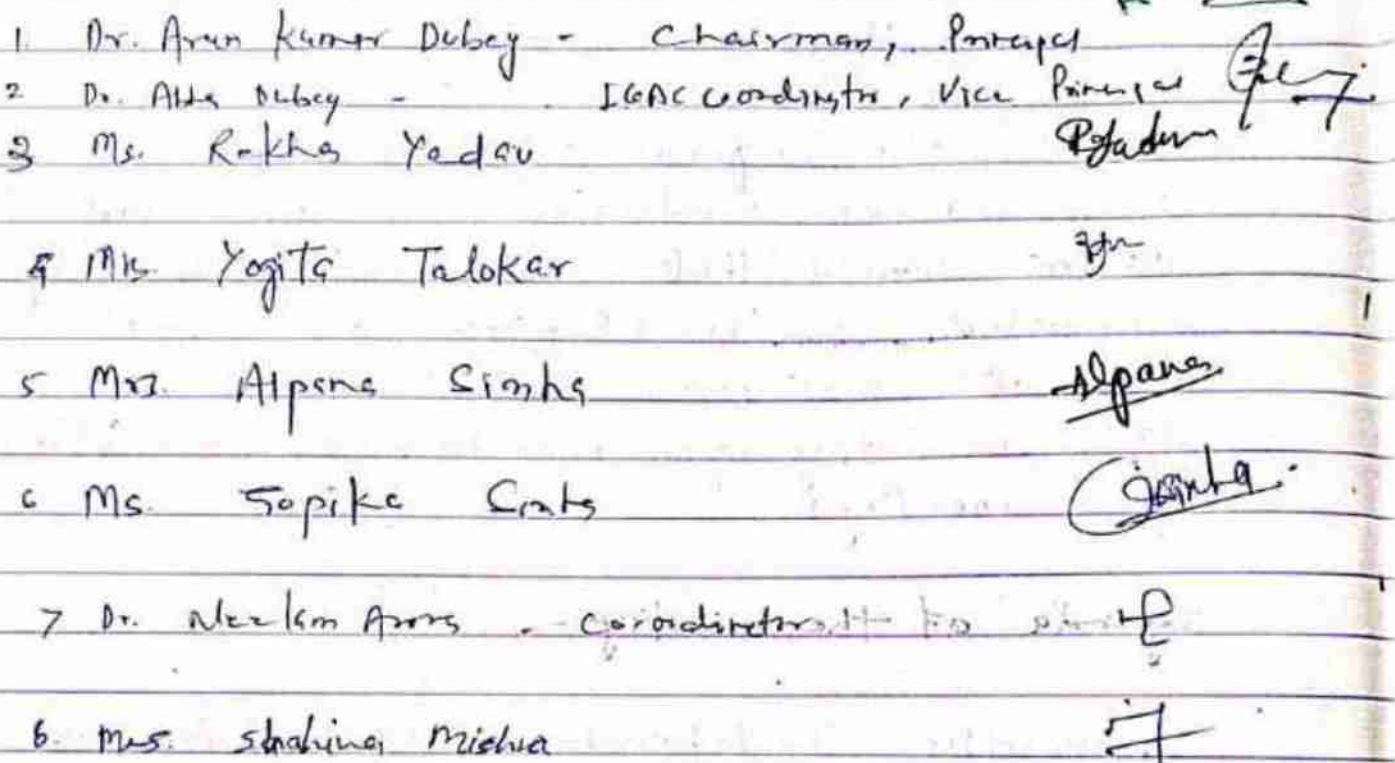 1. Dr. Arun Kumar Dubey - Chairman, Principal
2 Dr. Abha Dubey - IQAC Coordinator, Vice Principal
3 Ms. Rekha Yadav
4 Mrs. Yogita Talokar
5 Mrs. Alpana Simha Alpana
6 Ms. Gopika Sinha
7 Dr. Neelam Arora - Co-ordinator
6. Mrs. Shahina Mishra